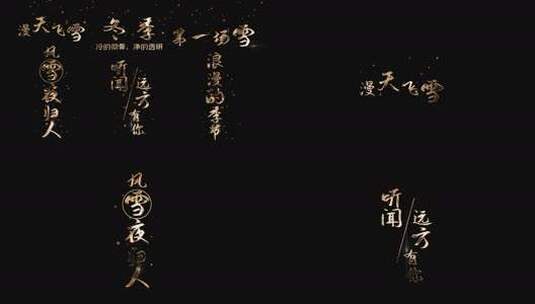 漫天飞雪
冬季
冷的彻骨，净的透明
第一场雪
风雪夜归人
听闻
远方
有你
浪漫的季节
漫天飞雪
风雪夜归人
听闻
远方
有你